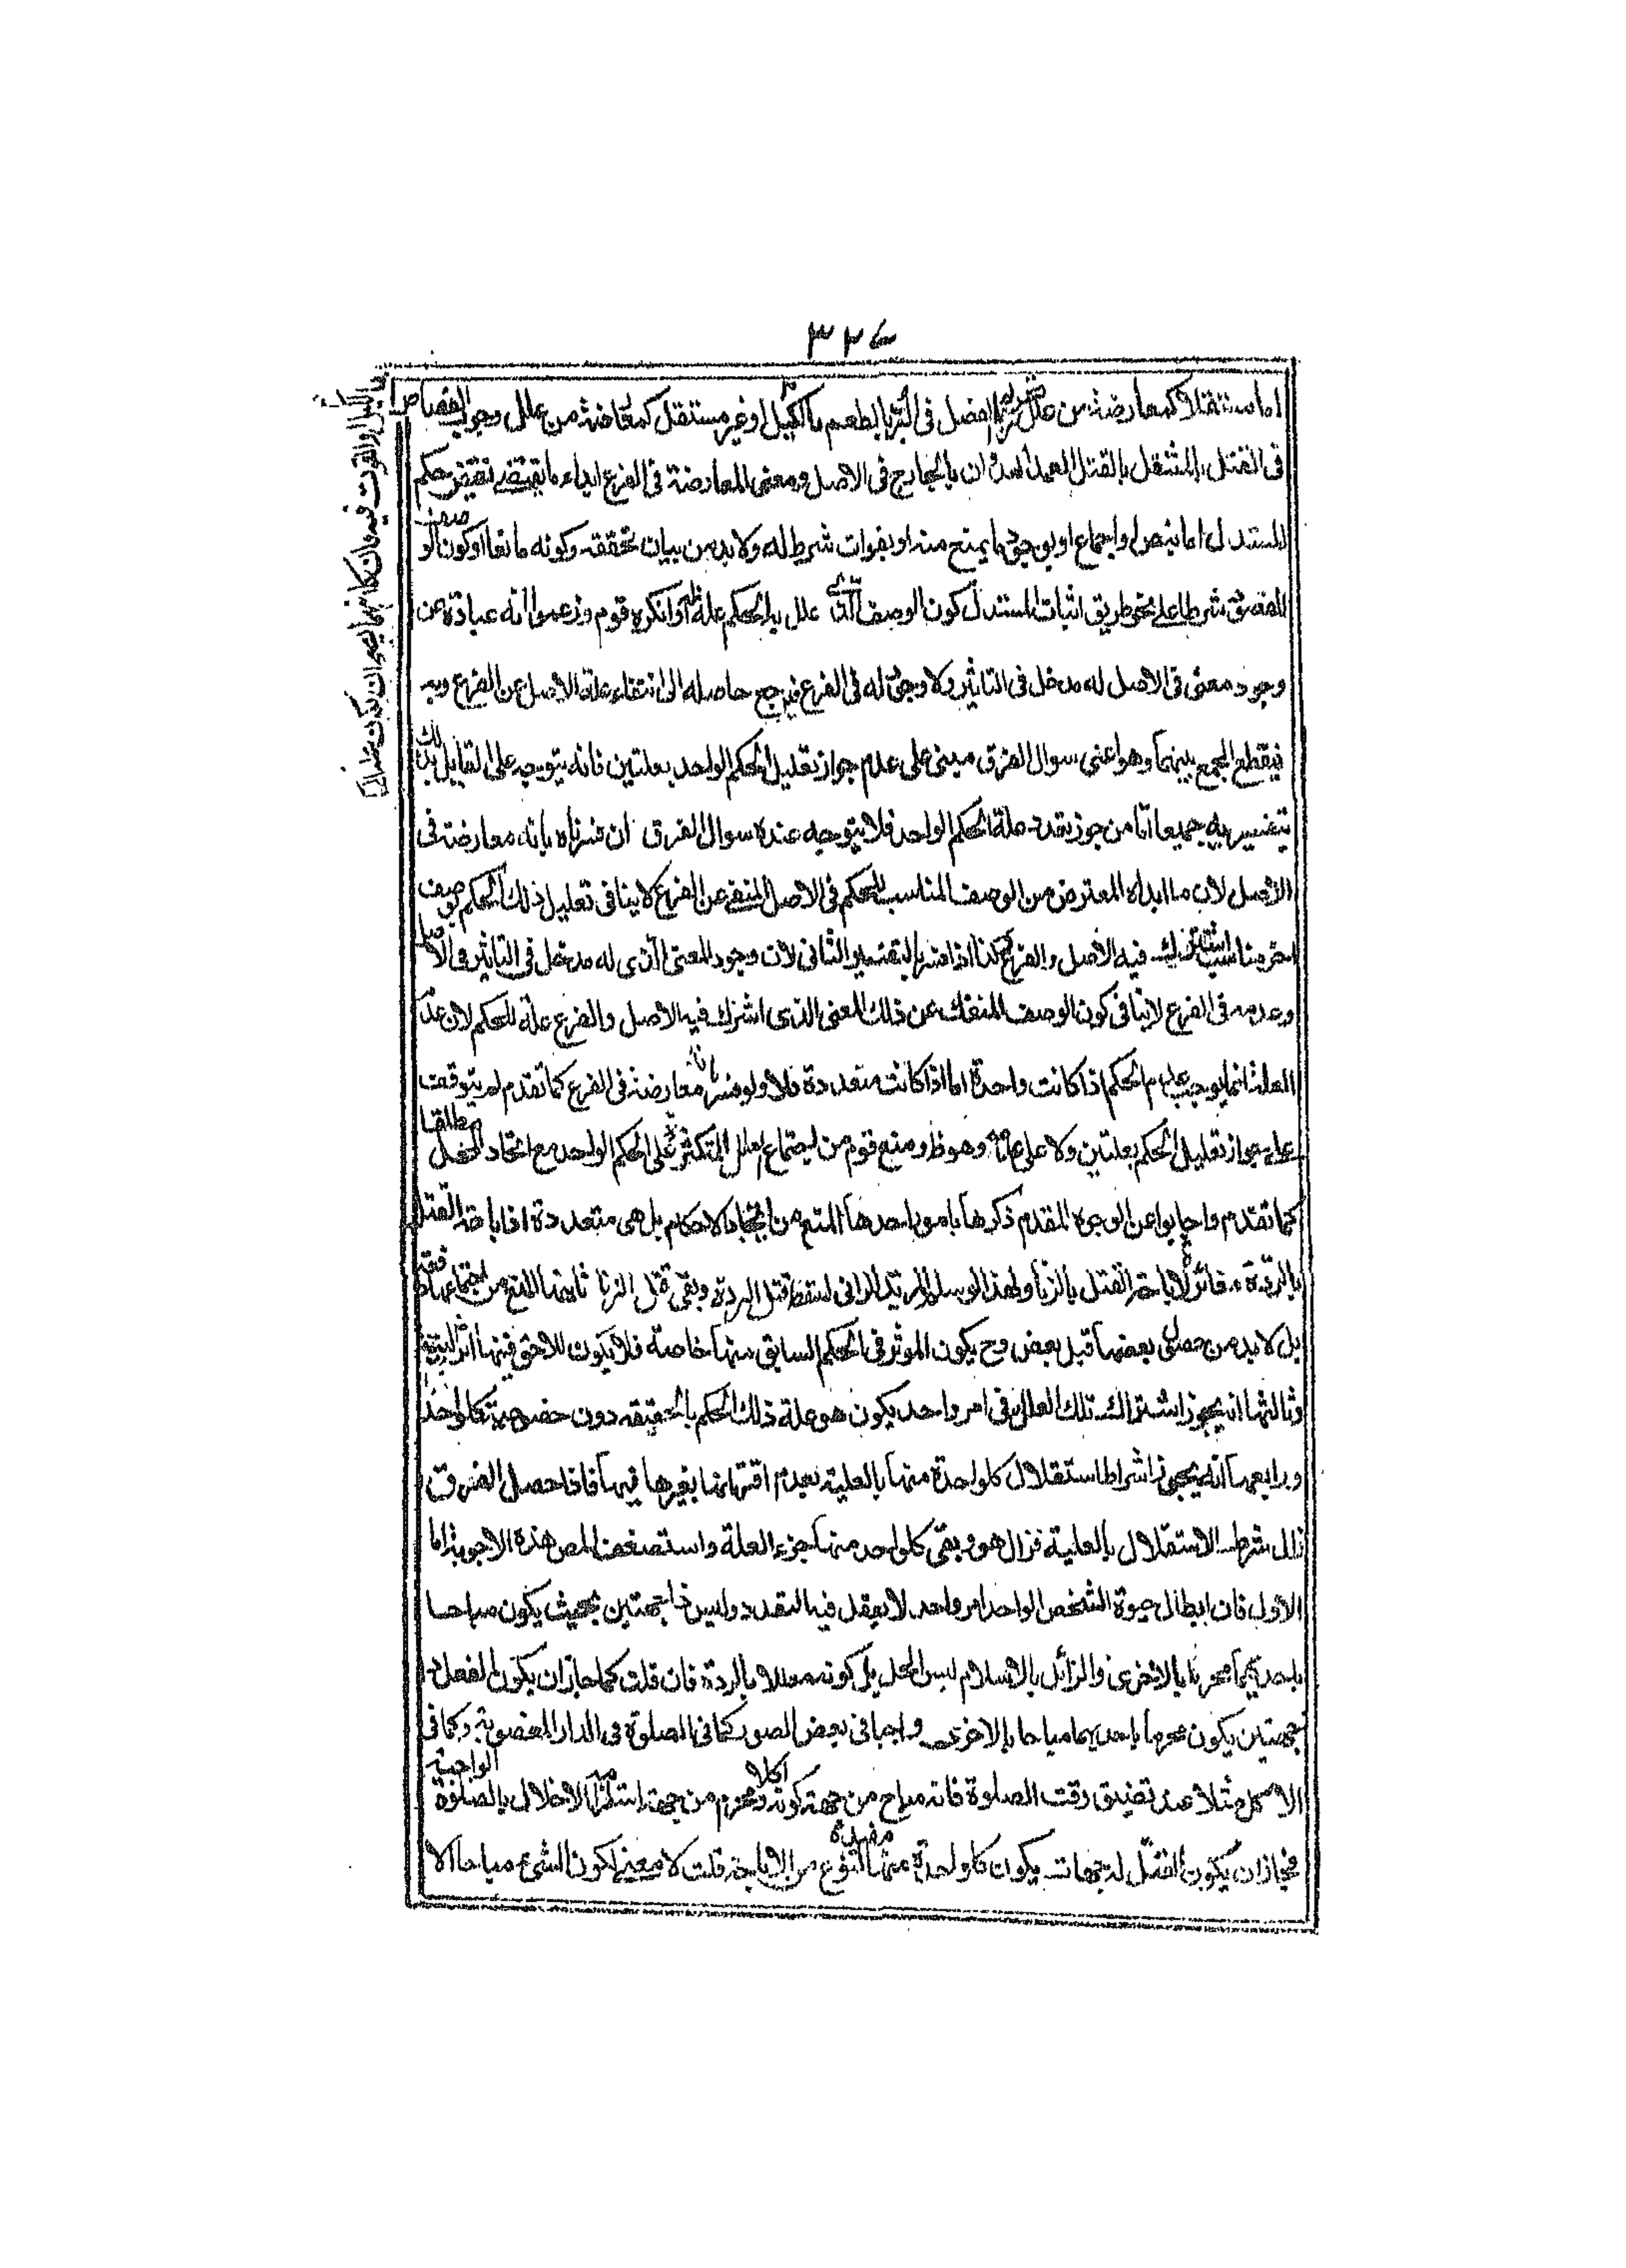 ٣٢٧
اما مستقلا كمعارضة من علل تحريم الفضل فى البر بالطعم بالكيل او غير مستقل كمعارضة من علل وجوب القصاص
فى القتل بالمثقل بالقتل العمد العدوان بالجارح فى الاصل ومعنى المعارضة فى الفرع ابداء ما يقتضى نقيض حكم
المستدل اما بنص او اجماع او بوجود ما يمنع منه او بفوات شرط له ولا بد من بيان تحققه وكونه مانعا او كون الوصف
المفوق شرطا على نحو طريق اثبات المستدل كون الوصف الذى علل به الحكم علة له وانكره قوم وزعموا انه عبارة عن
وجود معنى فى الاصل له مدخل فى التاثير ولا وجود له فى الفرع فيرجع حاصله الى انتفاء علة الاصل عن الفرع وبه
ينقطع الجمع بينهما وهو اعنى سوال الفرق مبنى على عدم جواز تعليل الحكم الواحد بعلتين فانه يتوجه على القايل بذلك
بتفسيريه جميعا اما من جوز تعدد علة الحكم الواحد فلا يتوجه عنده سوال الفرق ان فسرناه بانه معارضة فى
الاصل لان ما ابداه المعترض من الوصف المناسب للحكم فى الاصل المنفى عن الفرع لا ينافى تعليل ذلك الحكم بوصف
اخر مناسب اشترك فيه الاصل والفرع وكذا اذا فسر بالتفسير الثانى لان وجود المعنى الذى له مدخل فى التاثير فى الاصل
وعدمه فى الفرع لا ينافى كون الوصف المنفك عن ذلك المعنى الذى اشترك فيه الاصل والفرع علة للحكم لان عدم
العلة انما يوجب عدم الحكم اذا كانت واحدة اما اذا كانت متعددة فلا ولو فسر بانه معارضة فى الفرع كما تقدم لم يتوقف
على جواز تعليل الحكم بعلتين ولا على عدمه وهو ظ ومنع قوم من اجتماع العلل المتكثرة على الحكم الواحد مع اتحاد المحل مطلقا
كما تقدم واجابوا عن الوجوه المقدم ذكرها بامور احدها المنع من اتحاد الاحكام بل هى متعددة اذ اباحة القتل
بالردة مغائرة لاباحة القتل بالزنا ولهذا لو سلم المرتد الزانى لسقط قتل الردة وبقى قتل الزنا ثانيها المنع من اجتماعها دفعة
بل لا بد من حصول بعضها قبل بعض وح يكون الموثر فى الحكم السابق منها خاصة فلا يكون للاحق فيها اثر البتة
وثالثها انه يجوز اشتراك تلك العلل فى امر واحد يكون هو علة ذلك الحكم بالحقيقه دون خصوصية كل واحد
ورابعها انه يجوز اشراط استقلال كل واحدة منها بالعلية بعدم اقترانها بغيرها فيها فاذا حصل الفرق
زال شرط الاستقلال بالعلية فزال هو وبقى كل واحد منها جزء العلة واستضعف المص هذه الاجوبة اما
الاول فان ابطال حيوة الشخص الواحد امر واحد لا يعقل فيه التعدد وليس ذا جهتين بحيث يكون مباحا
باحديهما محرما بالاخرى والزائل بالاسلام ليس الحل بل كونه معللا بالردة فان قلت كما جاز ان يكون الفعل ذ
جهتين يكون محرما باحديهما مباحا بالاخرى واجبا فى بعض الصور كما فى الصلوة فى الدار المغصوبة وكما فى
الاكل مثلا عند تضيق وقت الصلوة فانه مباح من جهة كونه اكلا ومحرم من جهة استلزامه الاخلال بالصلوة الواجبة
فجاز ان يكون القتل له جهات يكون كل واحدة منها مفيدة لنوع من الاباحة قلت لا معنى لكون الشئ مباحا الا